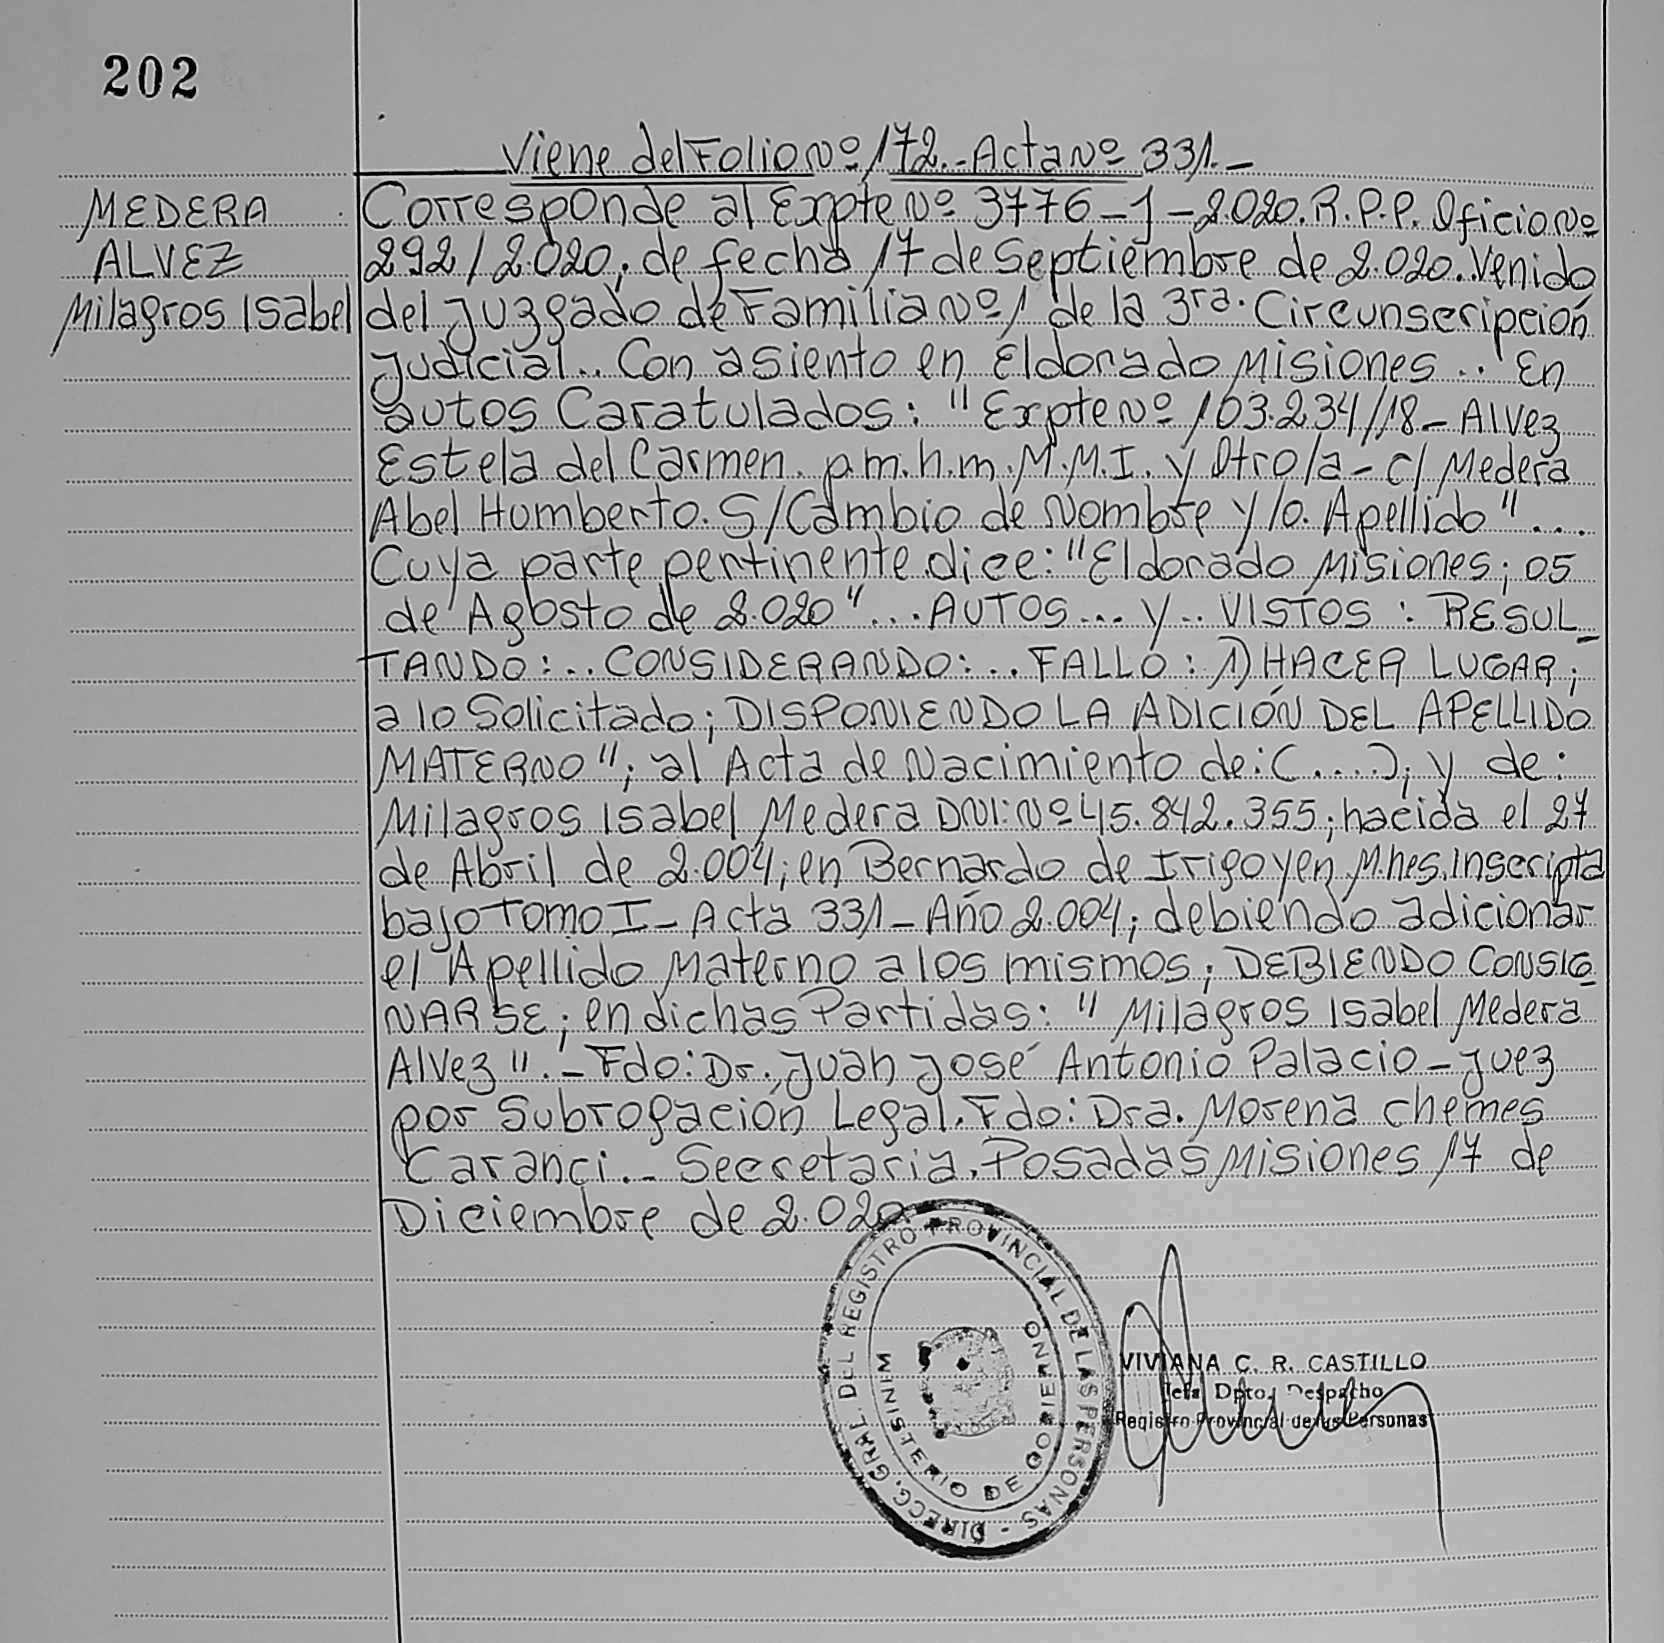 202
Viene del Folio Nº 172.- Acta Nº 331.-
MEDERA
ALVEZ
Milagros Isabel
Corresponde al Expte Nº 3776-J-2.020. R.P.P. Oficio Nº
292/2.020, de fecha 17 de Septiembre de 2.020. Venido
del Juzgado de Familia Nº 1 de la 3ra. Circunscripción
Judicial.. Con asiento en Eldorado Misiones.. En
autos Caratulados: "Expte Nº 103.234/18- Alvez
Estela del Carmen. p.m.h.m. M.M.I. y Otro/a - c/ Medera
Abel Humberto. S/Cambio de Nombre y/o. Apellido"....
Cuya parte pertinente dice: "Eldorado Misiones; 05
de Agosto de 2.020"...AUTOS... y.. VISTOS: RESUL-
TANDO:.. CONSIDERANDO:.. FALLO: 1) HACER LUGAR;
a lo Solicitado; DISPONIENDO LA ADICIÓN DEL APELLIDO
MATERNO"; al Acta de Nacimiento de: (....); y de:
Milagros Isabel Medera DNI: Nº 45.842.355; nacida el 27
de Abril de 2.004; en Bernardo de Irigoyen, Mnes. Inscripta
bajo Tomo I- Acta 331- Año 2.004; debiendo adicionar
el Apellido Materno a los mismos; DEBIENDO CONSIG-
NARSE; en dichas Partidas: "Milagros Isabel Medera
Alvez".- Fdo: Dr. Juan José Antonio Palacio - Juez
por Subrogación Legal. Fdo: Dra. Morena Chemes
Caranci.- Secretaria. Posadas Misiones 17 de
Diciembre de 2.020.
DIRECC. GRAL. DEL REGISTRO PROVINCIAL DE LAS PERSONAS -
MINISTERIO DE GOBIERNO
VIVIANA C. R. CASTILLO
Jefa Dpto. Despacho
Registro Provincial de las Personas